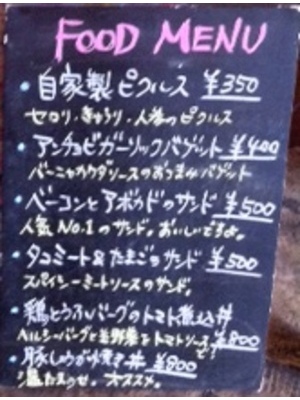 FOOD MENU
・自家製ピクルス ¥350
セロリ、きゅうり、人参のピクルス
・アンチョビガーリックバゲット ¥400
バーニャカウダソースのおつまみバゲット
・ベーコンとアボカドのサンド ¥500
人気No.1のサンド。おいしいですよ。
・タコミート&たまごサンド ¥500
スパイシーミートソースのサンド。
・鶏とうふハンバーグのトマト煮込丼
ヘルシーバーグと野菜をトマトソースで! ¥800
・豚しょうが焼き丼 ¥800
温たまのせ。オススメ。